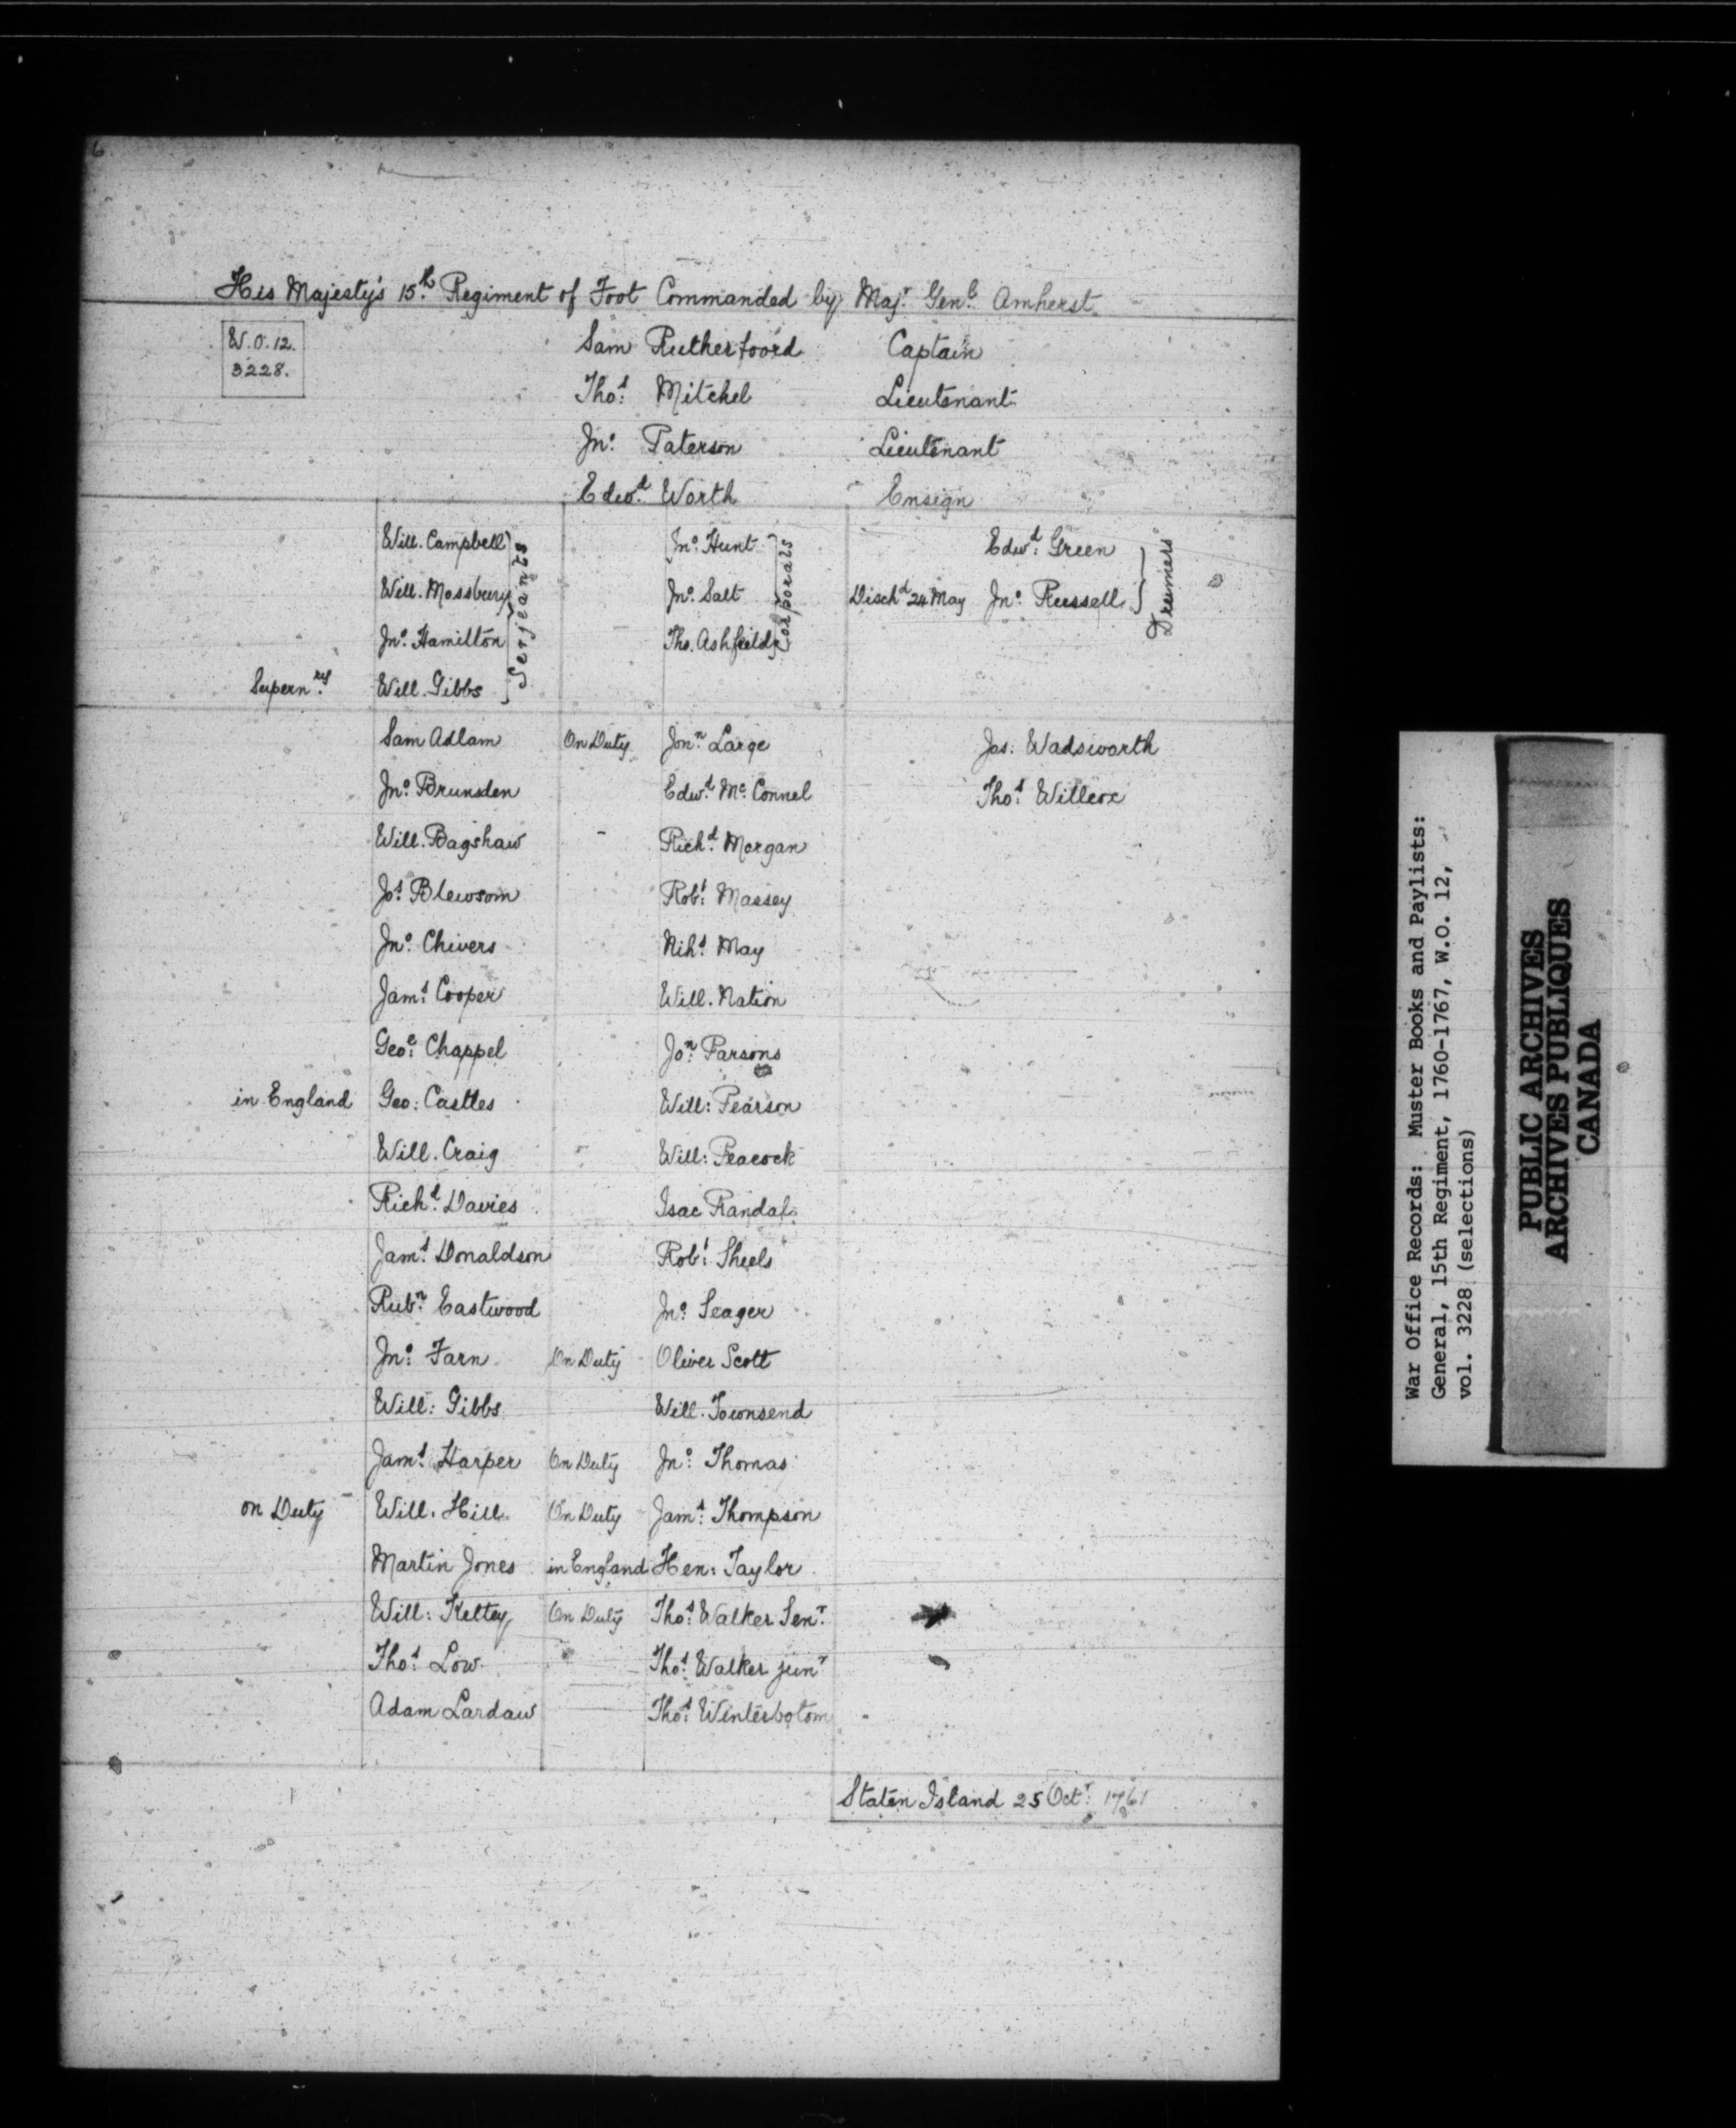 6.
His Majesty's 15th Regiment of Foot Commanded by Majr Genl Amherst
W.O.12.
3228.
Sam Rutherfoord Captain
Thos Mitchel Lieutenant
Jno Paterson Lieutenant
Edwd Worth Ensign
Will. Campbell Jno Hunt Edwd Green
Will. Mossbury Jno Salt Dischd 24 May Jno Russell
Jno Hamilton Tho. Ashfield
Supernry Will. Gibbs
Serjeants
Corporals
Drumers
Sam Adlam On Duty Jonn Large Jos: Wadsworth
Jno Brunsden Edwd Mc Connel Thos Willcox
Will. Bagshaw Richd Morgan
Jos Blewsom Robt Massey
Jno Chivers Nihs May
Jams Cooper Will. Nation
Geoe Chappel Jon Parsons
in England Geo: Castles Will: Pearson
Will. Craig Will: Peacock
Richd Davies Isac Randal
Jams Donaldson Robt Sheels
Rubn Eastwood Jno Seager
Jno Farn On Duty Oliver Scott
Will: Gibbs Will. Townsend
Jams Harper On Duty Jno Thomas
on Duty Will. Hill On Duty Jams Thompson
Martin Jones in England Hen: Taylor
Will: Keltey On Duty Thos Walker Senr
Thos Low Thos Walker junr
Adam Lardaw Thos Winterbotom
Staten Island 25 Octr 1761
War Office Records: Muster Books and Paylists:
General, 15th Regiment, 1760-1767, W.O. 12,
vol. 3228 (selections)
PUBLIC ARCHIVES
ARCHIVES PUBLIQUES
CANADA